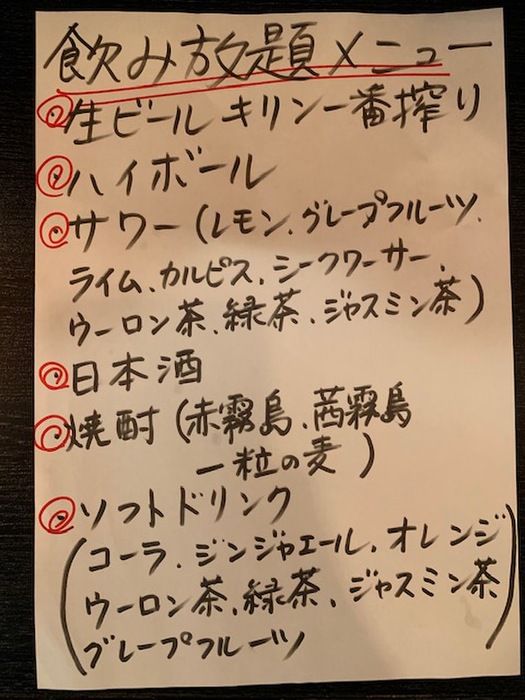 飲み放題メニュー
◎生ビール キリン一番搾り
◎ハイボール
◎サワー(レモン、グレープフルーツ、
ライム、カルピス、シークワーサー、
ウーロン茶、緑茶、ジャスミン茶)
◎日本酒
◎焼酎(赤霧島、茜霧島
一粒の麦)
◎ソフトドリンク
(コーラ、ジンジャエール、オレンジ
ウーロン茶、緑茶、ジャスミン茶
グレープフルーツ)